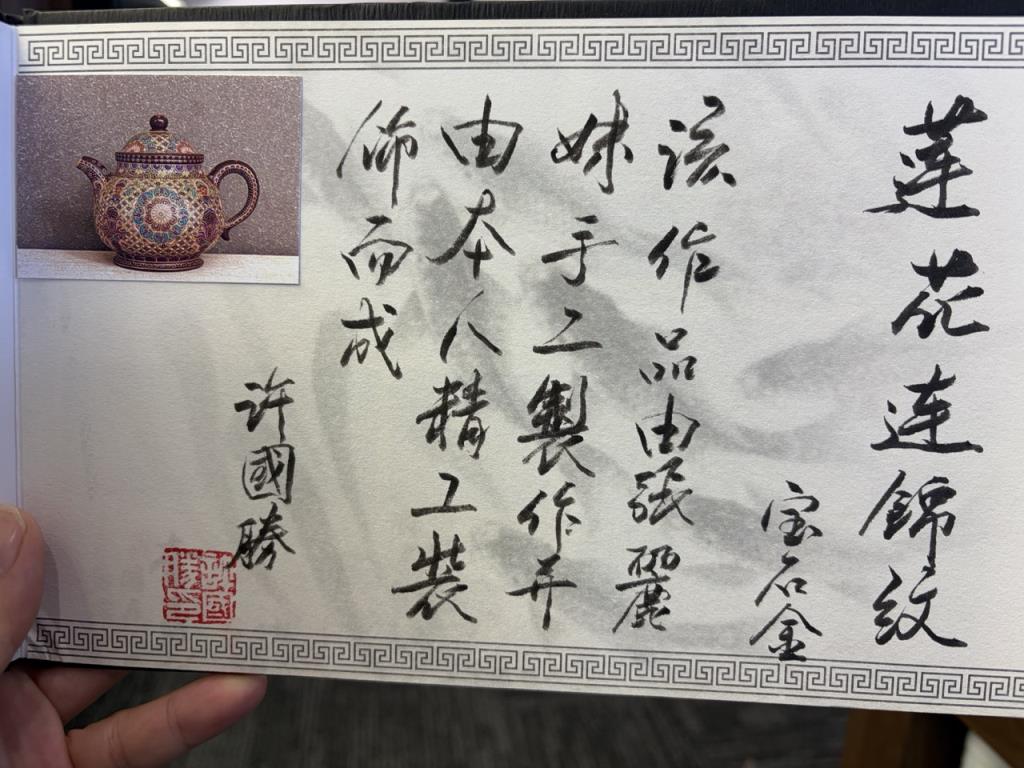 莲花连錦紋
宝石金
该作品由張麗
妹手工製作并
由本人精工裝
饰而成
许國勝
許國勝印